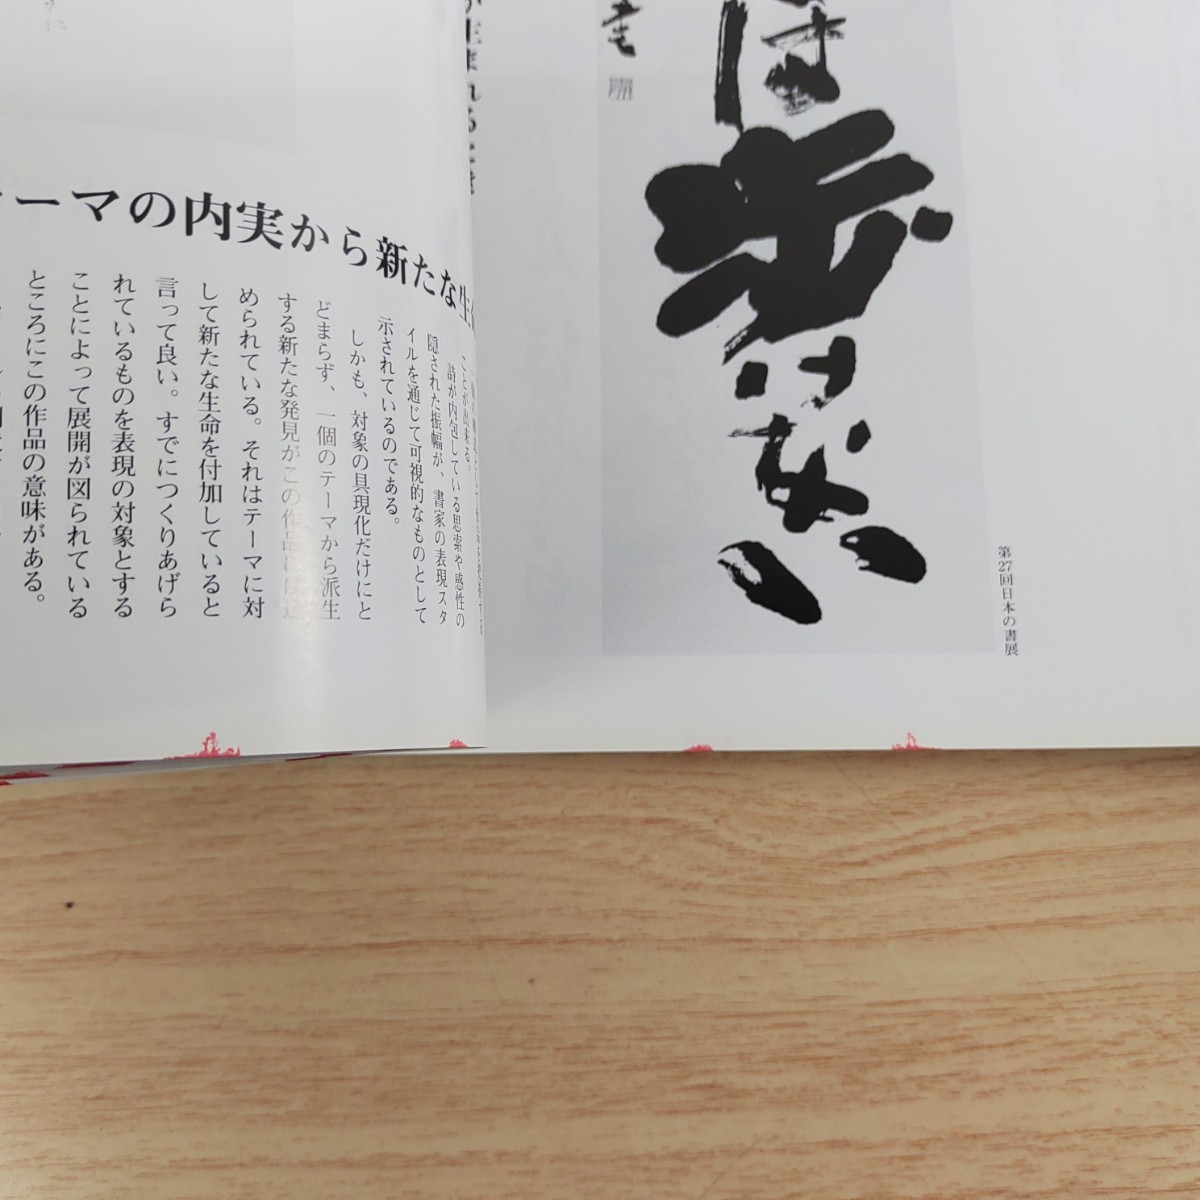 ーマの内実から新たな生
ことが出来る。
詩が内包している思索や感性の
隠された振幅が、書家の表現スタ
イルを通じて可視的なものとして
示されているのである。
しかも、対象の具現化だけにと
どまらず、一個のテーマから派生
する新たな発見がこの作品には込
められている。それはテーマに対
して新たな生命を付加していると
言って良い。すでにつくりあげら
れているものを表現の対象とする
ことによって展開が図られている
ところにこの作品の意味がある。
が生まれるとき
は歩けない
第27回日本の書展